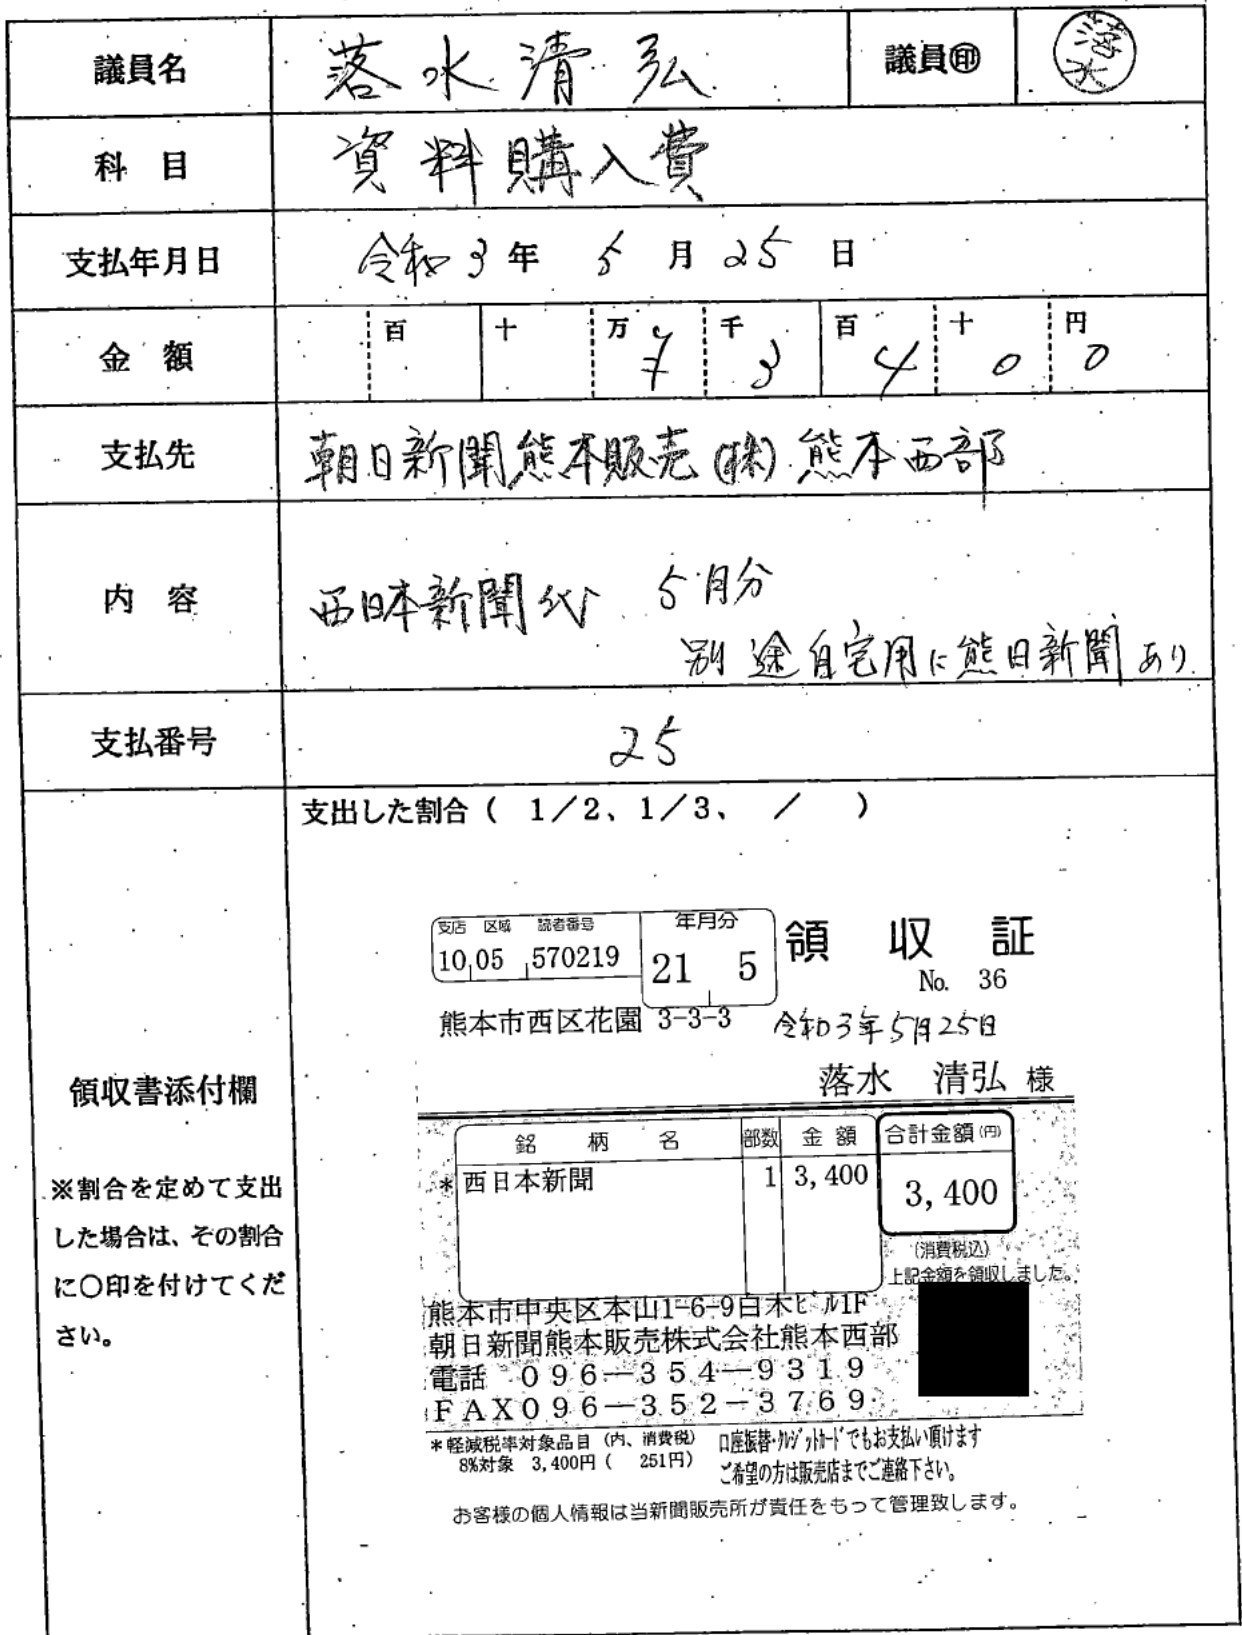 議員名 落水清弘 議員㊞ 落水
科目 資料購入費
支払年月日 令和3年 5月25日
金額 百 十 万 ¥ 千 3 百 4 十 0 円 0
支払先 朝日新聞熊本販売(株)熊本西部
内容 西日本新聞代 5月分
別途自宅用に熊日新聞あり
支払番号 25
支出した割合( 1/2、1/3、 / )
領収書添付欄
※割合を定めて支出
した場合は、その割合
に○印を付けてくだ
さい。
支店 区域 読者番号 年月分
10 05 570219 21 5 領収証
No. 36
熊本市西区花園 3-3-3 令和3年5月25日
落水 清弘 様
銘柄名 部数 金額 合計金額(円)
*西日本新聞 1 3,400 3,400
(消費税込)
上記金額を領収しました。
熊本市中央区本山1-6-9白木ビル1F
朝日新聞熊本販売株式会社熊本西部
電話 096-354-9319
FAX096-352-3769
*軽減税率対象品目(内、消費税) 口座振替・クレジットカードでもお支払い頂けます
8%対象 3,400円( 251円) ご希望の方は販売店までご連絡下さい。
お客様の個人情報は当新聞販売所が責任をもって管理致します。